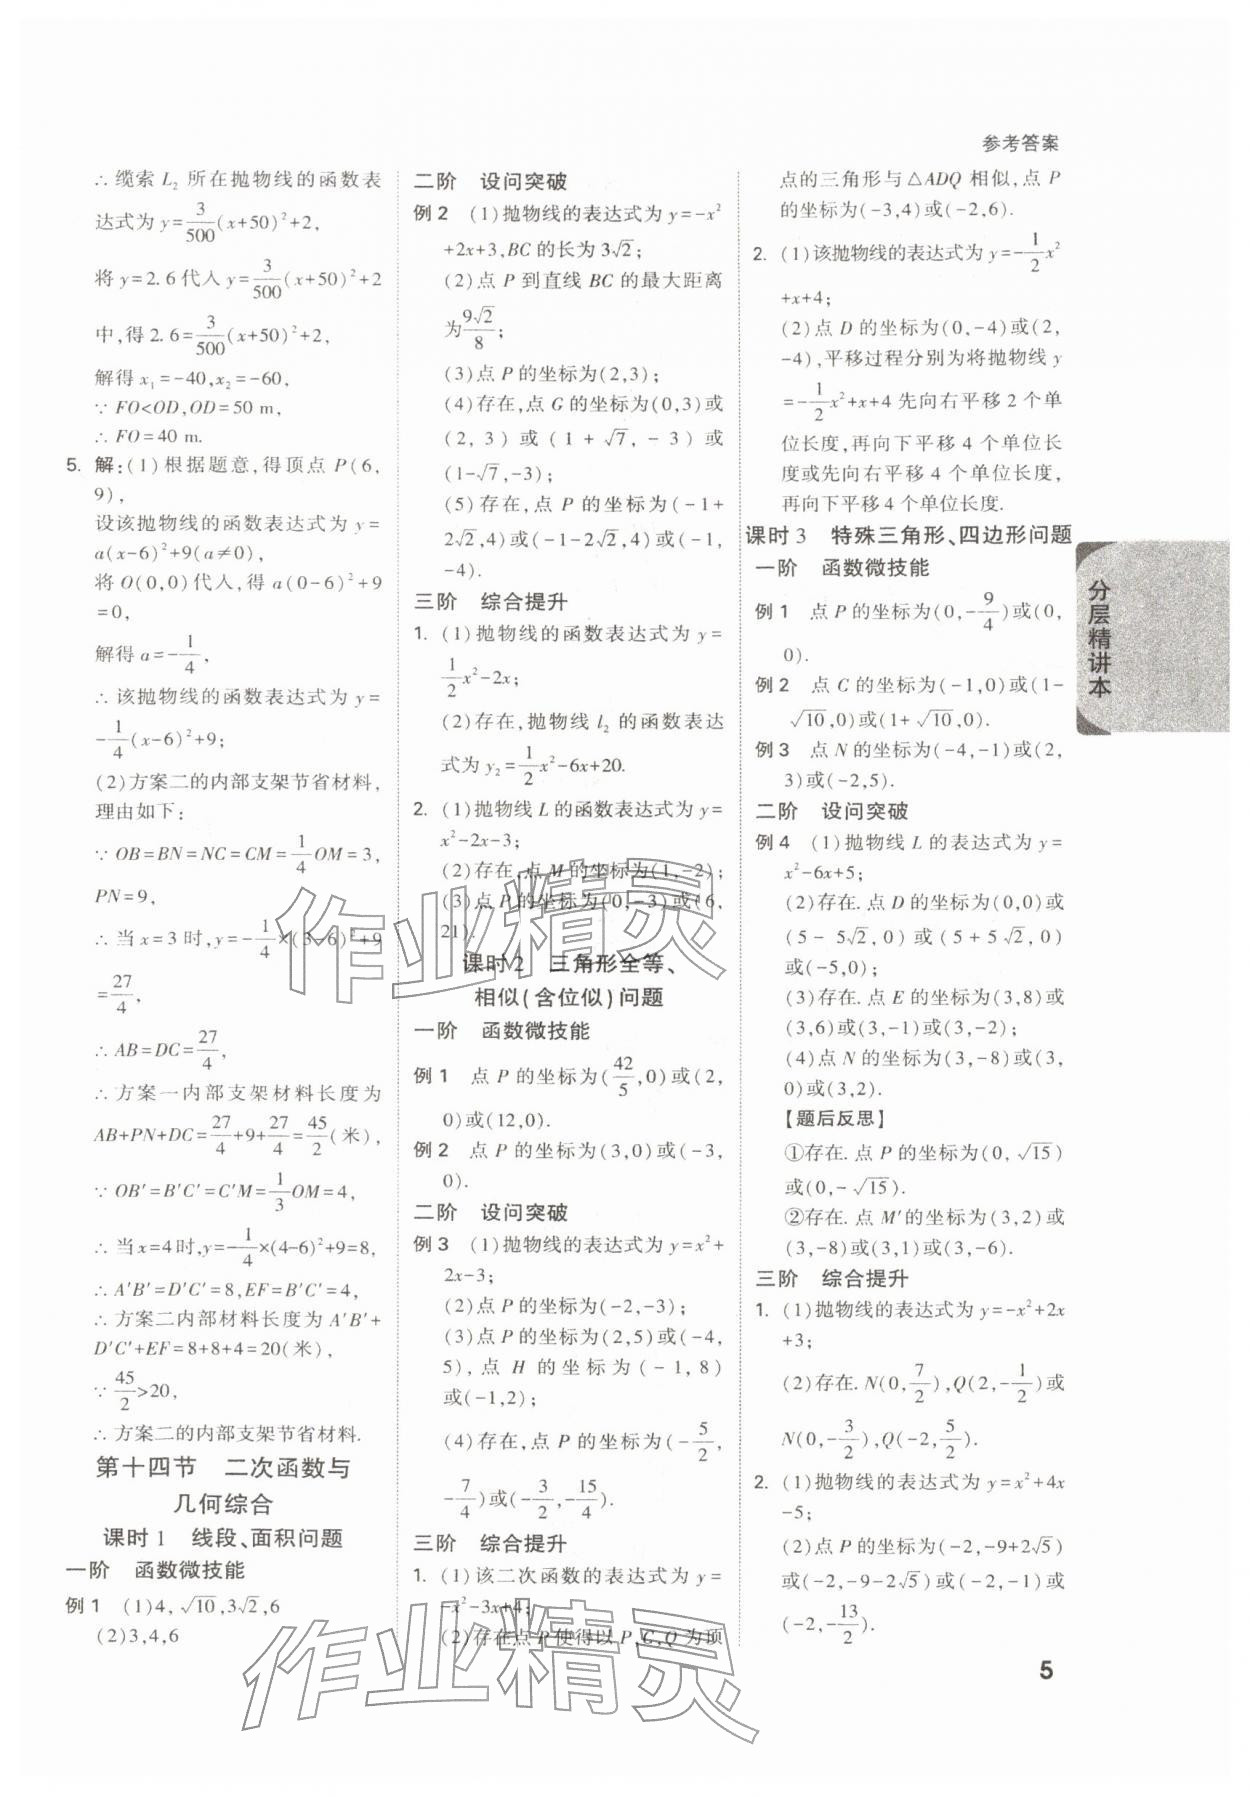 参考答案
∴缆索 L₂ 所在抛物线的函数表
达式为 y=3/500(x+50)²+2,
将 y=2.6代入 y=3/500(x+50)²+2
中,得2.6=3/500(x+50)²+2,
解得 x₁=-40,x₂=-60,
∵FO<OD,OD=50 m,
∴FO=40 m.
5. 解:(1)根据题意,得顶点 P(6,
9),
设该抛物线的函数表达式为 y=
a(x-6)²+9(a≠0),
将 O(0,0)代入,得 a(0-6)²+9
=0,
解得 a=-1/4,
∴该抛物线的函数表达式为 y=
-1/4(x-6)²+9;
(2)方案二的内部支架节省材料,
理由如下:
∵OB=BN=NC=CM=1/4OM=3,
PN=9,
∴当 x=3 时,y=-1/4×(3-6)²+9
=27/4,
∴AB=DC=27/4,
∴方案一内部支架材料长度为
AB+PN+DC=27/4+9+27/4=45/2(米),
∵OB′=B′C′=C′M=1/3OM=4,
∴当x=4时,y=-1/4×(4-6)²+9=8,
∴A′B′=D′C′=8,EF=B′C′=4,
∴方案二内部材料长度为 A′B′+
D′C′+EF=8+8+4=20(米),
∵45/2>20,
∴方案二的内部支架节省材料.
第十四节 二次函数与
几何综合
课时1 线段、面积问题
一阶 函数微技能
例1 (1)4,√10,3√2,6
(2)3,4,6
二阶 设问突破
例2 (1)抛物线的表达式为 y=-x²
+2x+3,BC 的长为 3√2;
(2)点 P 到直线 BC 的最大距离
为9√2/8;
(3)点 P 的坐标为(2,3);
(4)存在,点 G 的坐标为(0,3)或
(2,3)或(1+√7,-3)或
(1-√7,-3);
(5)存在,点 P 的坐标为(-1+
2√2,4)或(-1-2√2,4)或(-1,
-4).
三阶 综合提升
1. (1)抛物线的函数表达式为 y=
1/2x²-2x;
(2)存在,抛物线 l₂ 的函数表达
式为 y₂=1/2x²-6x+20.
2. (1)抛物线 L 的函数表达式为 y=
x²-2x-3;
(2)存在,点 M 的坐标为(1,-2);
(3)点 P 的坐标为(0,-3)或(6,
21).
课时2 三角形全等、
相似(含位似)问题
一阶 函数微技能
例1 点 P 的坐标为(42/5,0)或(2,
0)或(12,0).
例2 点 P 的坐标为(3,0)或(-3,
0).
二阶 设问突破
例3 (1)抛物线的表达式为 y=x²+
2x-3;
(2)点 P 的坐标为(-2,-3);
(3)点 P 的坐标为(2,5)或(-4,
5),点 H 的坐标为(-1,8)
或(-1,2);
(4)存在,点 P 的坐标为(-5/2,
-7/4)或(-3/2,-15/4).
三阶 综合提升
1. (1)该二次函数的表达式为 y=
-x²-3x+4;
(2)存在点 P 使得以 P,C,Q 为顶
点的三角形与△ADQ 相似,点 P
的坐标为(-3,4)或(-2,6).
2. (1)该抛物线的表达式为 y=-1/2x²
+x+4;
(2)点 D 的坐标为(0,-4)或(2,
-4),平移过程分别为将抛物线 y
=-1/2x²+x+4 先向右平移 2 个单
位长度,再向下平移 4 个单位长
度或先向右平移 4 个单位长度,
再向下平移4个单位长度.
课时3 特殊三角形、四边形问题
一阶 函数微技能
例1 点 P 的坐标为(0,-9/4)或(0,
0).
例2 点 C 的坐标为(-1,0)或(1-
√10,0)或(1+√10,0).
例3 点 N 的坐标为(-4,-1)或(2,
3)或(-2,5).
二阶 设问突破
例4 (1)抛物线 L 的表达式为 y=
x²-6x+5;
(2)存在.点 D 的坐标为(0,0)或
(5-5√2,0)或(5+5√2,0)或
(-5,0);
(3)存在.点 E 的坐标为(3,8)或
(3,6)或(3,-1)或(3,-2);
(4)点 N 的坐标为(3,-8)或(3,
0)或(3,2).
【题后反思】
①存在.点 P 的坐标为(0,√15)
或(0,-√15).
②存在.点 M′的坐标为(3,2)或
(3,-8)或(3,1)或(3,-6).
三阶 综合提升
1. (1)抛物线的表达式为 y=-x²+2x
+3;
(2)存在.N(0,7/2),Q(2,-1/2)或
N(0,-3/2),Q(-2,5/2).
2. (1)抛物线的表达式为 y=x²+4x
-5;
(2)点 P 的坐标为(-2,-9+2√5)
或(-2,-9-2√5)或(-2,-1)或
(-2,-13/2).
分层精讲本
5
作业精灵
作业精灵